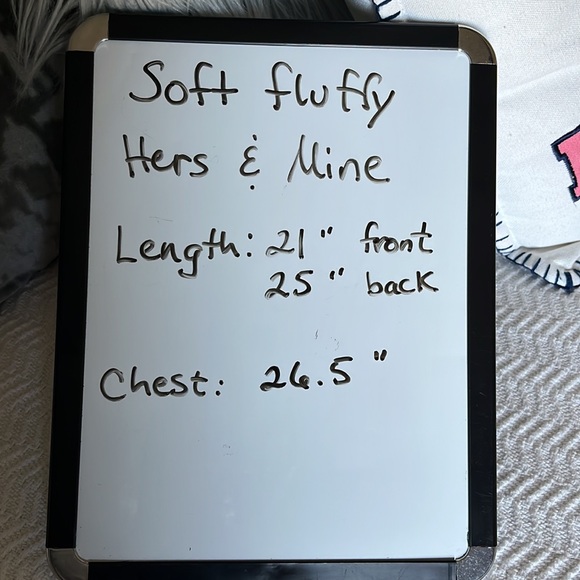 Soft fluffy
Hers & Mine
Length: 21" front
25" back
Chest: 26.5"